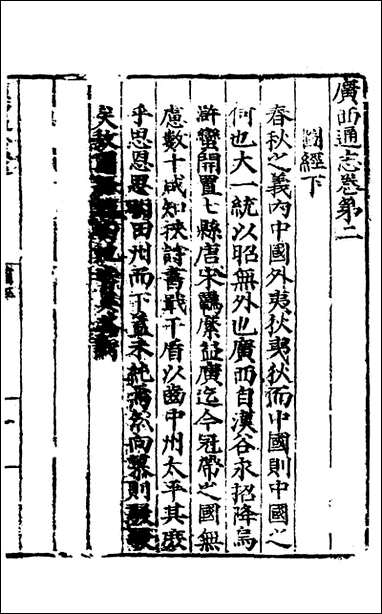 廣西通志卷第二
圖經下
春秋之義內中國外夷狄夷狄而中國則中國之
何也大一統以昭無外也廣西自漢谷永招降烏
滸蠻開置七縣唐宋羈縻益廣迄今冠帶之國無
慮數十咸知挾詩書戢干盾以齒中州太平其庶
乎思恩思明田州而下蓋未純焉然向慕則駸駸
矣故